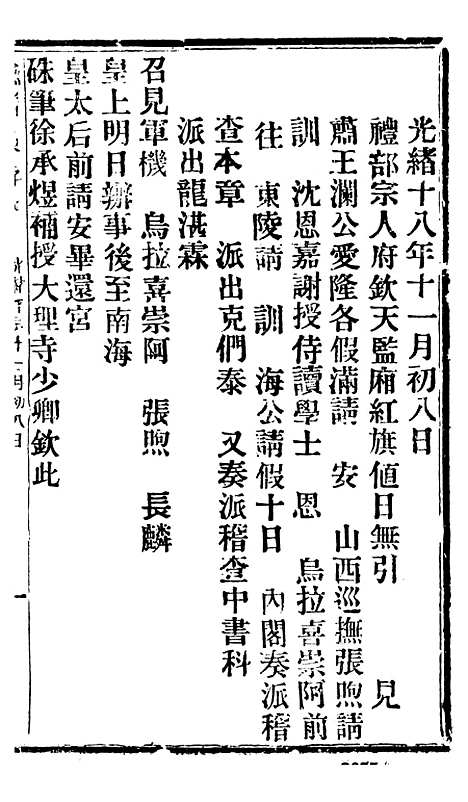 光緒十八年十一月初八日
禮部宗人府欽天監廂紅旗値日無引　　見
肅王瀾公愛隆各假滿請　安　山西巡撫張煦請
訓　沈恩嘉謝授侍讀學士　恩　烏拉喜崇阿前
往　東陵請　訓　海公請假十日　內閣奏派稽
查本章　派出克們泰　又奏派稽查中書科
派出龍湛霖
召見軍機　烏拉喜崇阿　張煦　長麟
皇上明日辦事後至南海
皇太后前請安畢還宮
硃筆徐承煜補授大理寺少卿欽此
十一月初八日